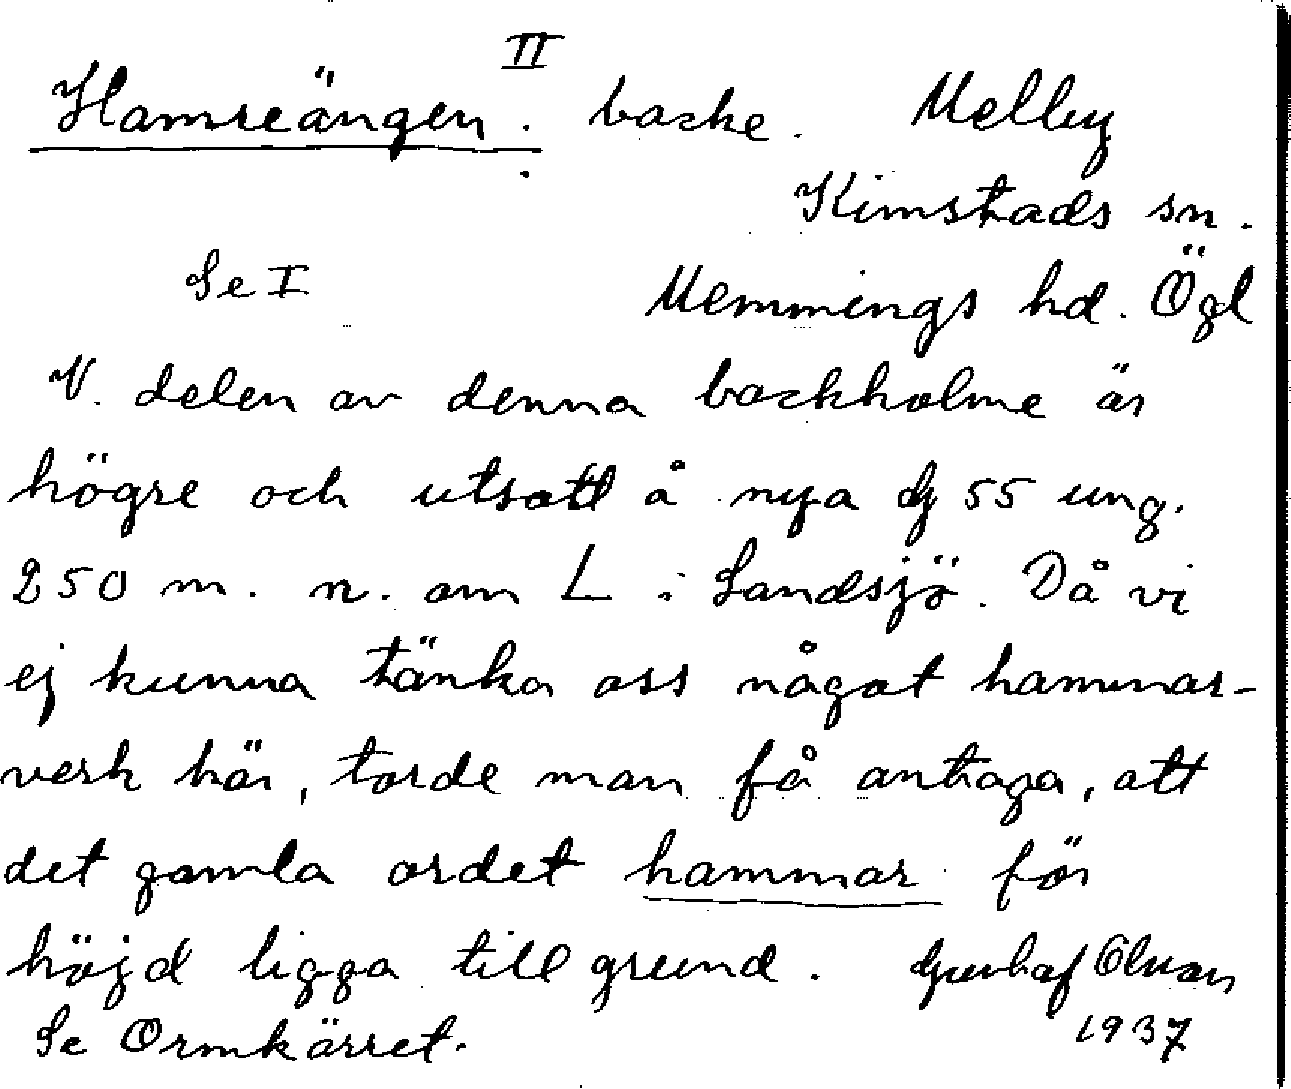 II
Hamreängen. backe. Melby
Kimstads sn.
Se I Memmings hd. Ögl
V. delen av denna backholme är
högre och utsatt å nya Gg 55 ung.
250 m. n. om L i Landsjö. Då vi
ej kunna tänka oss något hammar-
verk här, torde man få antaga, att
det gamla ordet hammar för
höjd ligga till grund. Gustaf Olsson
Se Ormkärret. 1937